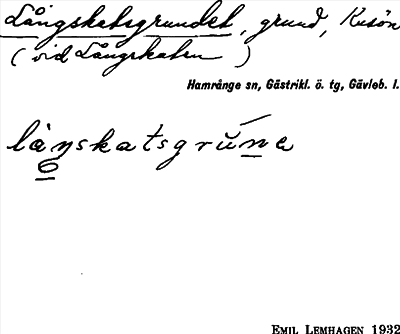 Långskatsgrundet, grund, Kusön
(vid Långskatan)
Hamrånge sn, Gästrikl. ö. tg, Gävleb. l.
lånskatsgrŭna
EMIL LEMHAGEN 1932